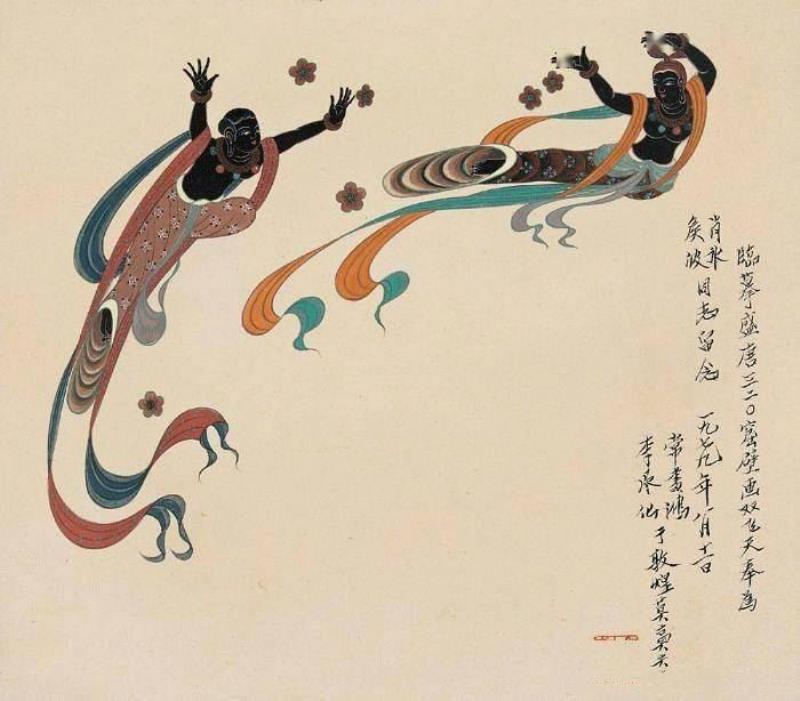 臨摹盛唐三二〇窟壁画双飞天奉為
肖氷
侯波
同志留念 一九七九年八月
常書鴻
李承仙
于敦煌莫高窟